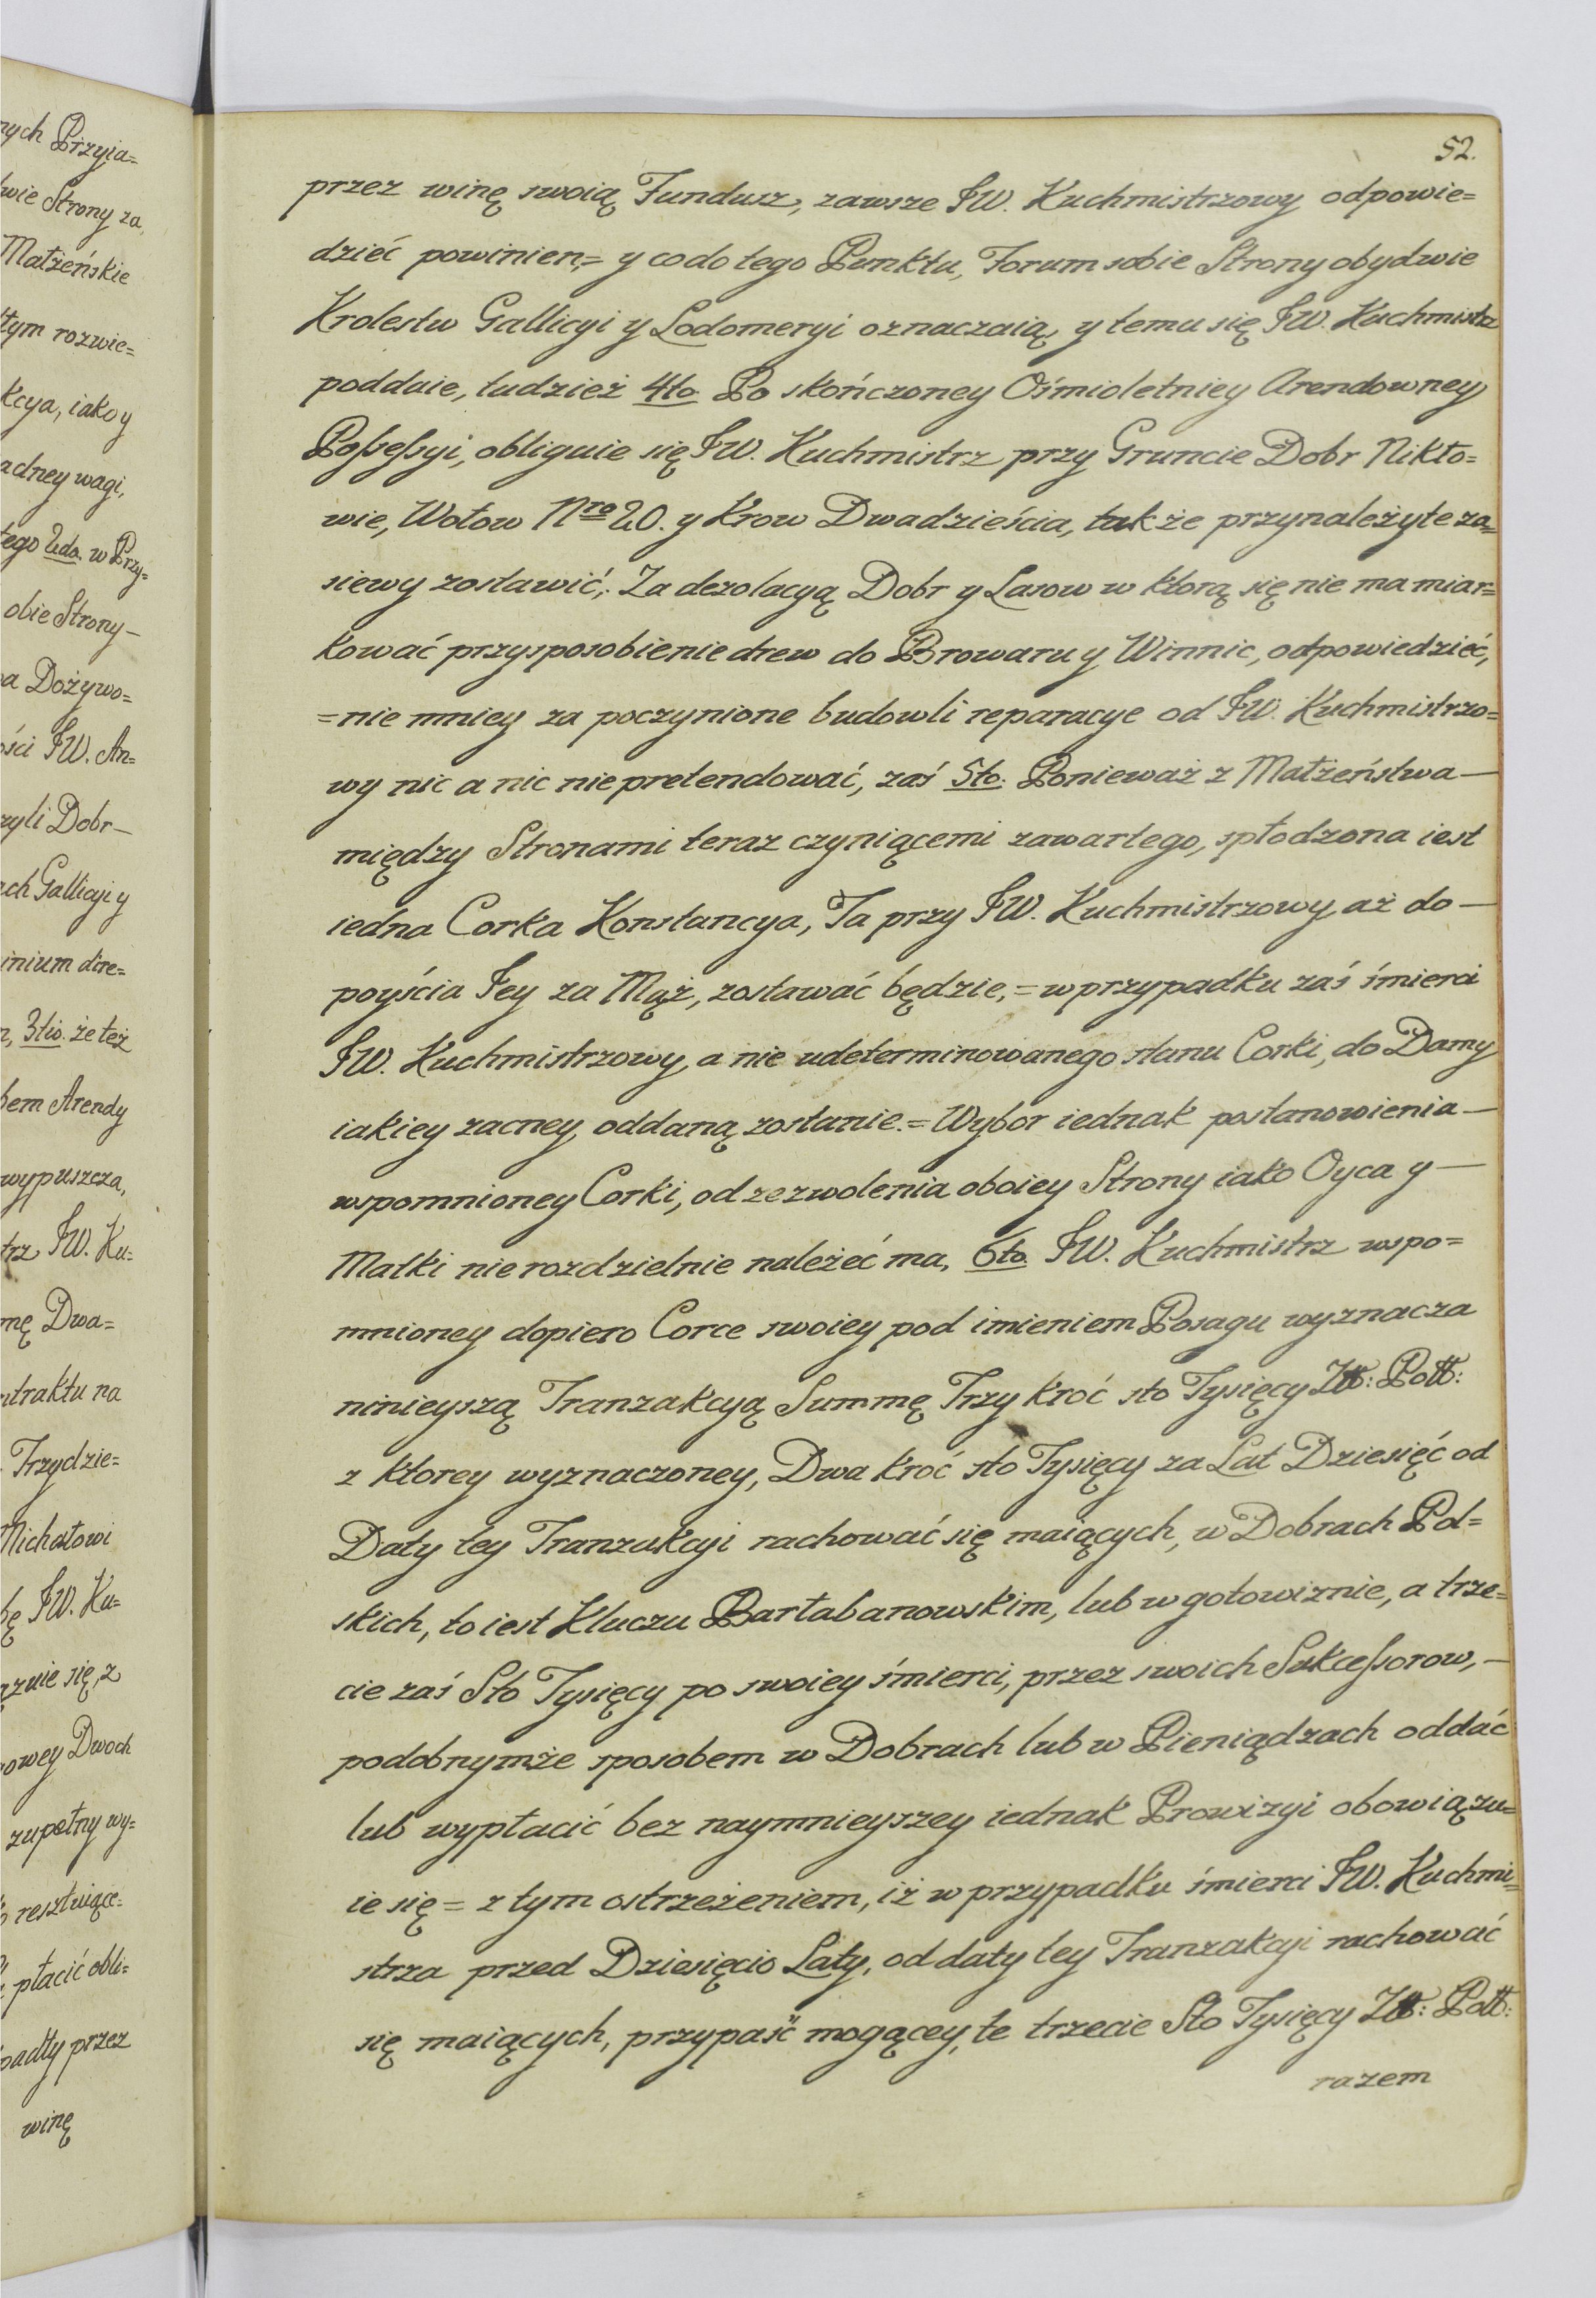 nych Przyia=
wie Strony za
Małżeńskie
tym rozwie=
kcya, iako y
adney wagi,
tego 2do. w Przy=
obie Strony —
a Dożywo=
ości JW. An=
zyli Dobr —
ach Gallicyi y
inium dire=
3tio. że też
bem Arendy
wypuszcza,
trz JW. Ku=
mę Dwa=
ntraktu na
Trzydzie=
Michałowi
bę JW. Ku=
znie się, z
owey Dwoch
zupełny wy=
resztuiące=
płacić obli=
padły przez
winę
52.
przez winę swoią Fundusz, zawsze JW. Kuchmistrzowy odpowie=
dzieć powinien,= y co do tego Punktu, Forum sobie Strony obydwie
Krolestw Gallicyi y Lodomeryi oznaczaią, y temu się JW. Kuchmistrz
poddaie, tudzież 4to. Po skończoney Ośmioletniey Arendowney
Possessyi, obliguie się JW. Kuchmistrz przy Gruncie Dobr Nikło=
wie, Wołow Nro 20. y Krow Dwadzieścia, tak że przynależyte za=
siewy zostawić, Za dezolacyą Dobr y Lasow w ktorą się nie ma miar=
kować przysposobienie drew do Browaru y Winnic, odpowiedzieć,
=nie mniey za poczynione budowli reparacye od JW. Kuchmistrzo=
wy nic a nic nie pretendować, zaś 5to. Ponieważ z Małżeństwa —
między Stronami teraz czyniącemi zawartego, spłodzona iest
iedna Corka Konstancya, Ta przy JW. Kuchmistrzowy, aż do —
poyścia Jey za Mąż, zostawać będzie,= w przypadku zaś śmierci
JW. Kuchmistrzowy, a nie udeterminowanego stanu Corki, do Damy
iakiey zacney, oddaną zostanie.= Wybor iednak postanowienia —
wspomnioney Corki, od zezwolenia oboiey Strony iako Oyca y —
Matki nierozdzielnie należeć ma, 6to. JW. Kuchmistrz wspo=
mnioney dopiero Corce swoiey pod imieniem Posagu wyznacza
ninieyszą Tranzakcyą Summę Trzy kroć sto Tysięcy Złł: Poll:
z ktorey wyznaczoney, Dwa kroć sto Tysięcy za Lat Dziesięć od
Daty tey Tranzakcyi rachować się maiących, w Dobrach Pol=
skich, to iest Kluczu Bartabanowskim, lub w gotowiznie, a trze=
cie zaś Sto Tysięcy po swoiey śmierci, przez swoich Sukcessorow, —
podobnymże sposobem w Dobrach lub w Pieniądzach oddać
lub wypłacić bez naymnieyszey iednak Prowizyi obowiązu=
ie się = z tym ostrzeżeniem, iż w przypadku śmierci JW. Kuchmi=
strza przed Dziesięcio Laty, od daty tey Tranzakcyi rachować
się maiących, przypaść mogącey, te trzecie Sto Tysięcy Złł: Poll:
razem